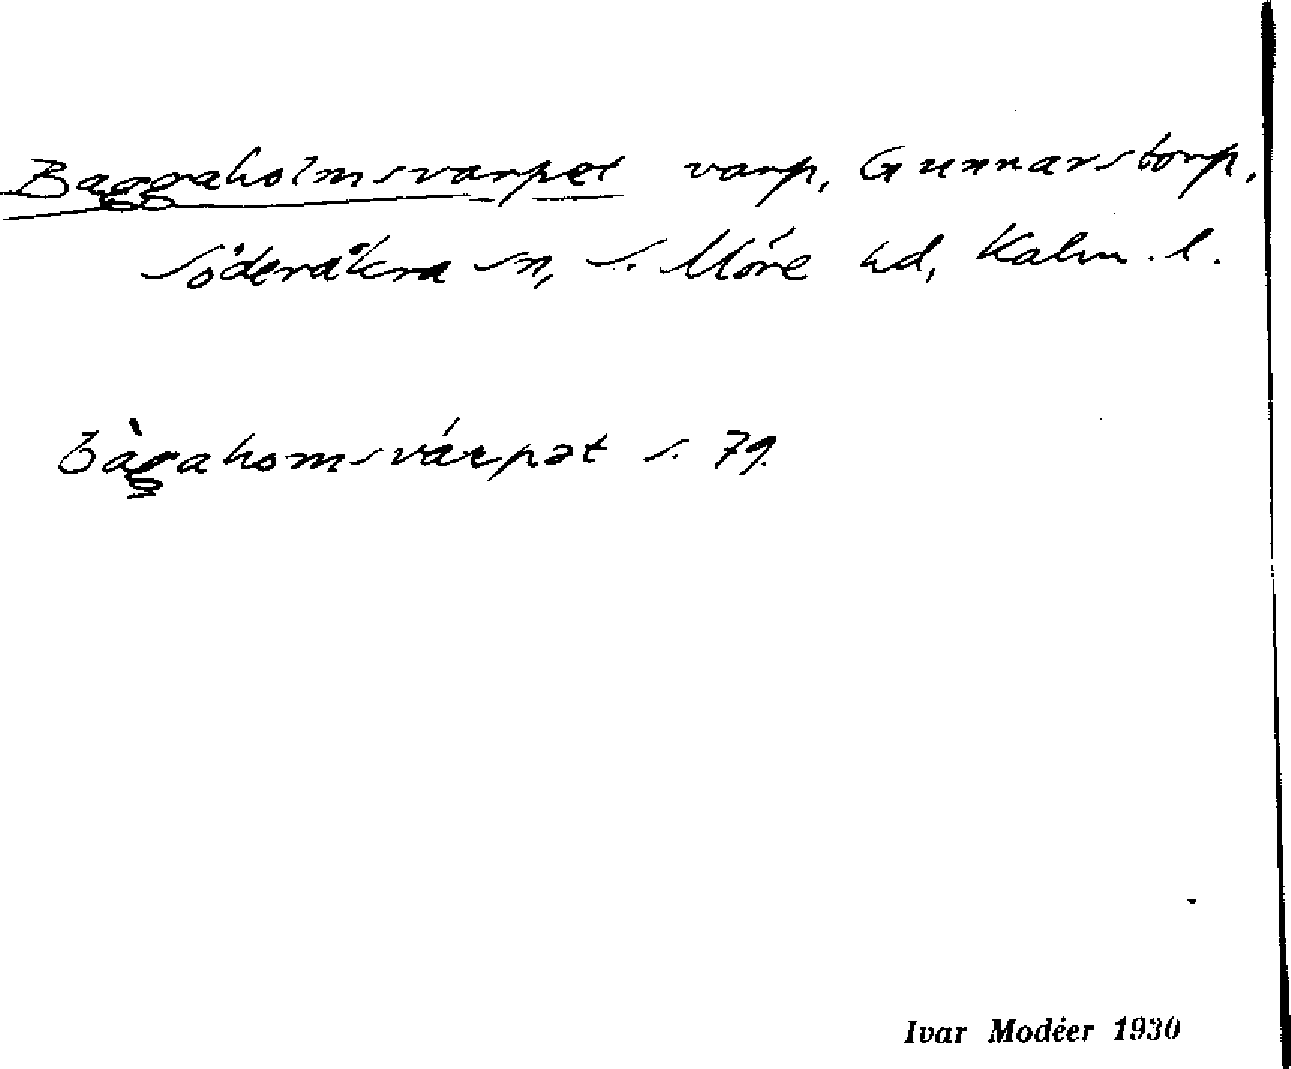 Baggaholmsvarpet varp, Gunnarstorp,
Söderåkra sn, S. Möre hd, Kalm. l.
bàgahomsvárpət s. 79.
Ivar Modéer 1930